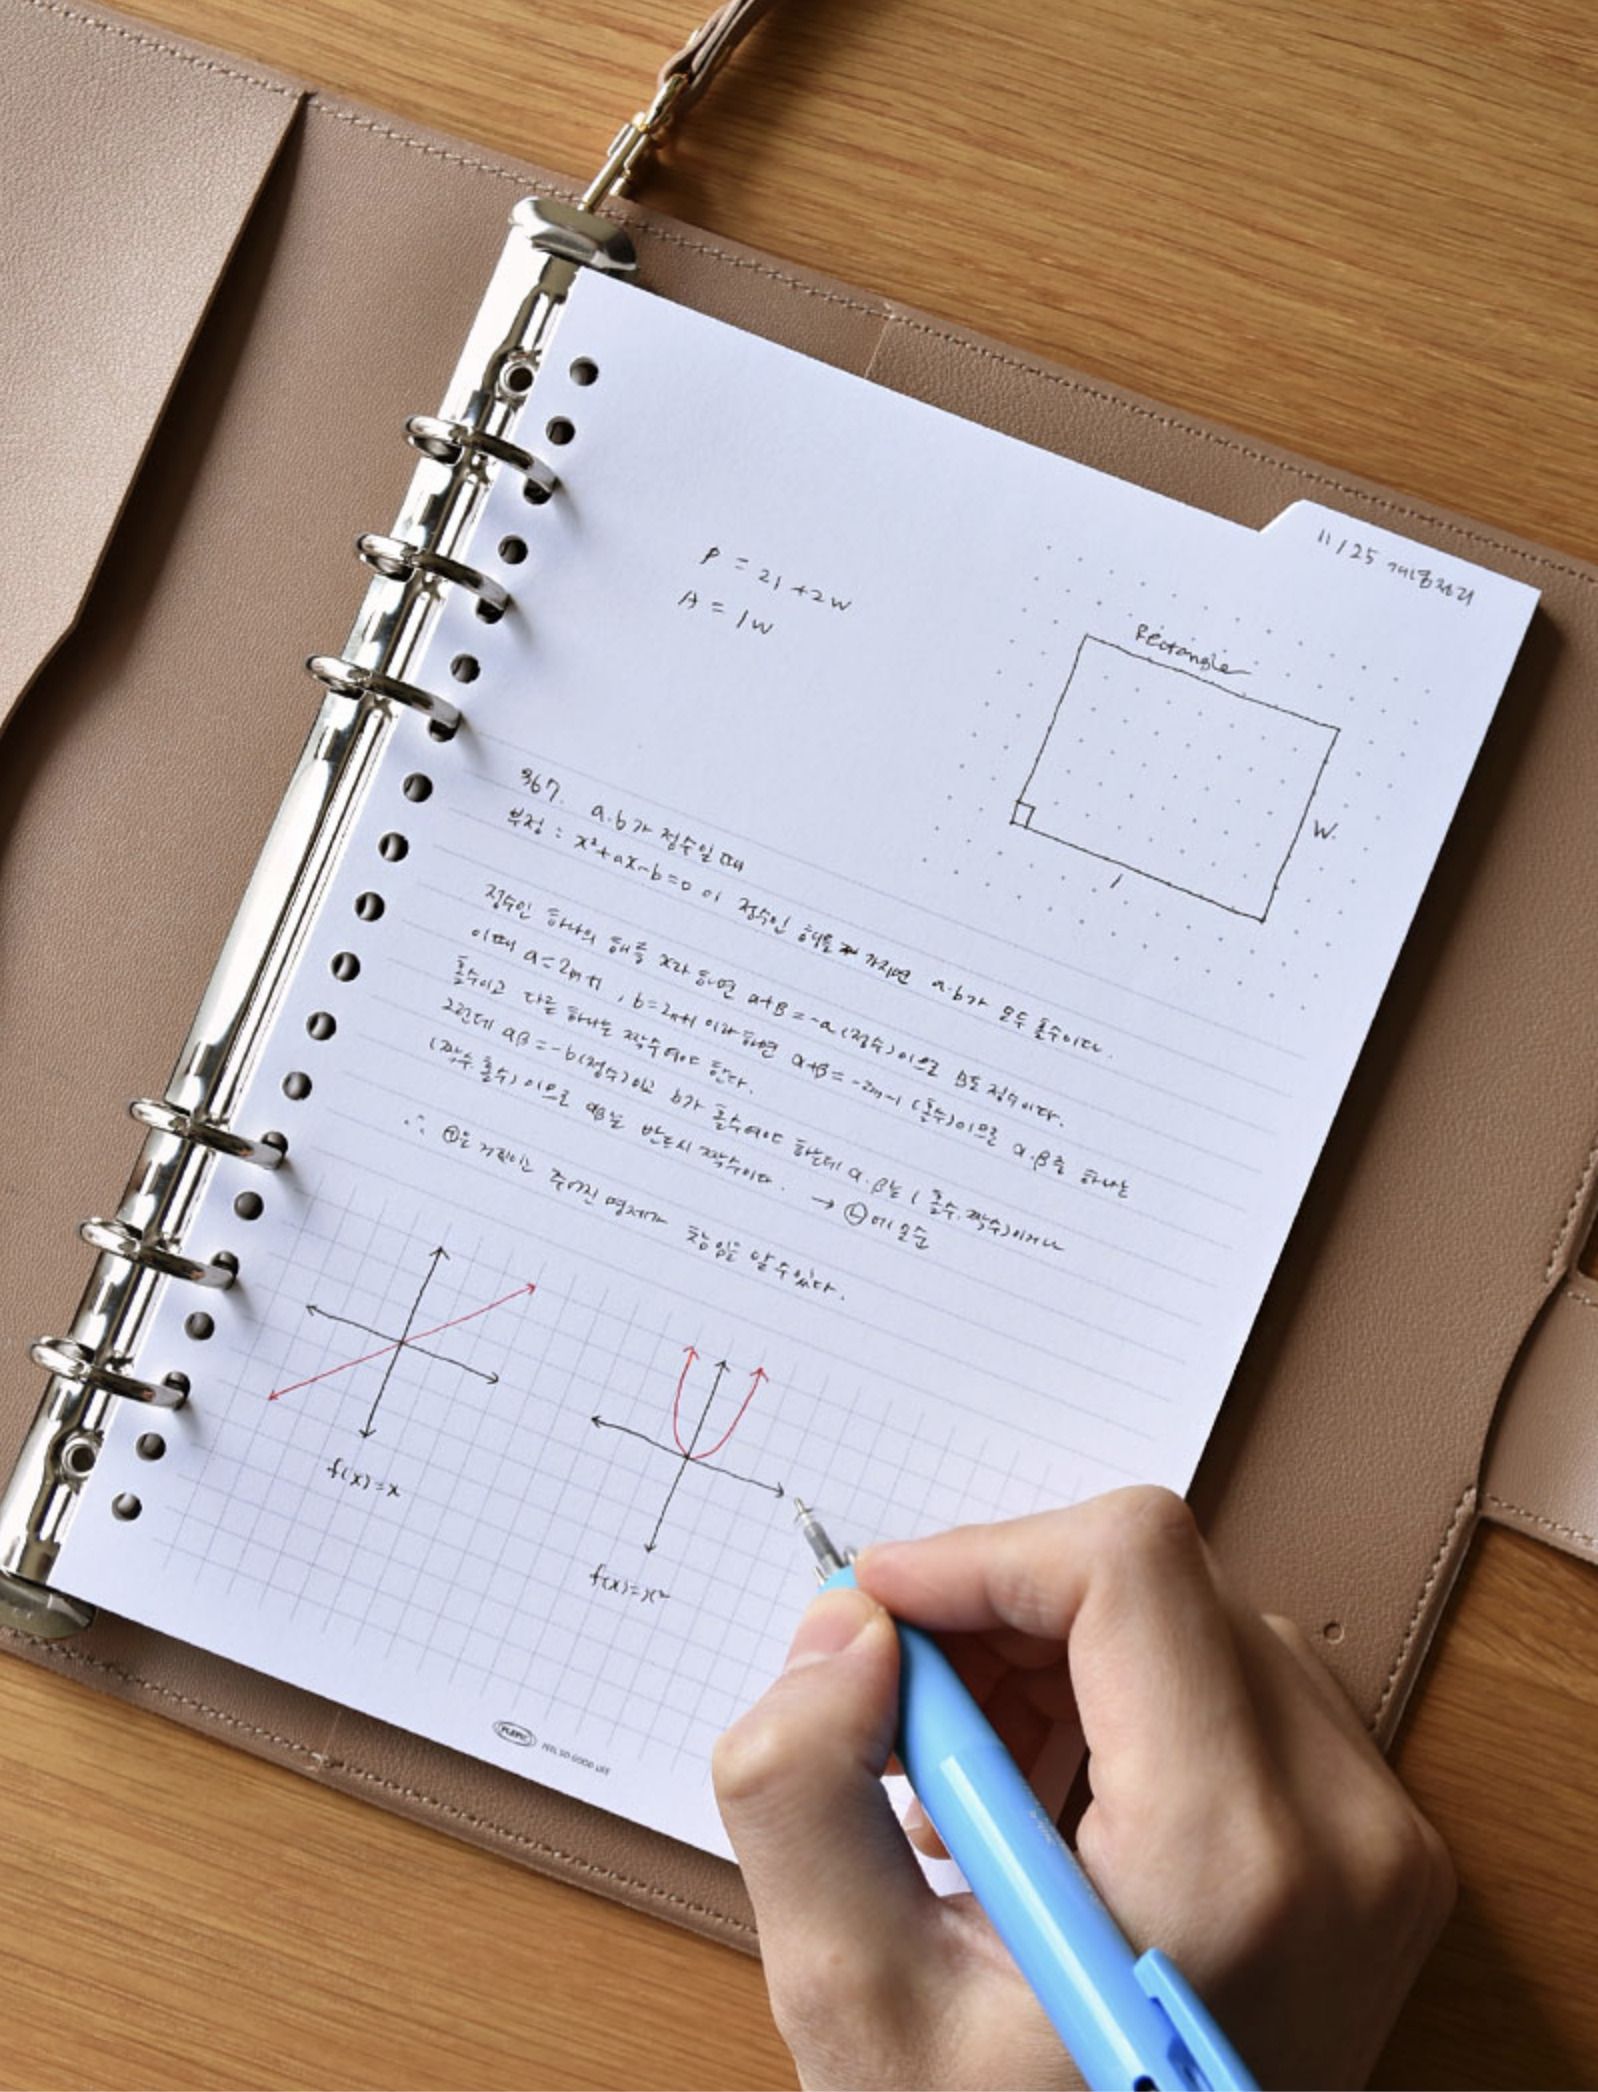 11/25 개념정리
P = 2l + 2w
A = lw
Rectangle
w.
l
367. a.b가 정수일 때
부정 : x²+ax-b=0 이 정수인 해를 가지면 a.b가 모두 홀수이다.
정수인 하나의 해를 α라 하면 α+β = -a (정수)이므로 β도 정수이다.
이때 a=2m+1, b=2n+1 이라하면 α+β = -2m-1 (홀수)이므로 α.β중 하나는
홀수이고 다른 하나는 짝수여야 한다.
그런데 αβ = -b(정수)이고 b가 홀수여야 하는데 α.β는 (홀수.짝수)이거나
(짝수.홀수)이므로 αβ는 반드시 짝수이다. → ㉡에 모순
∴ ㉠은 거짓이고 주어진 명제가 참임을 알 수 있다.
f(x)=x
f(x)=x²
PLEPIC FEEL SO GOOD LIFE